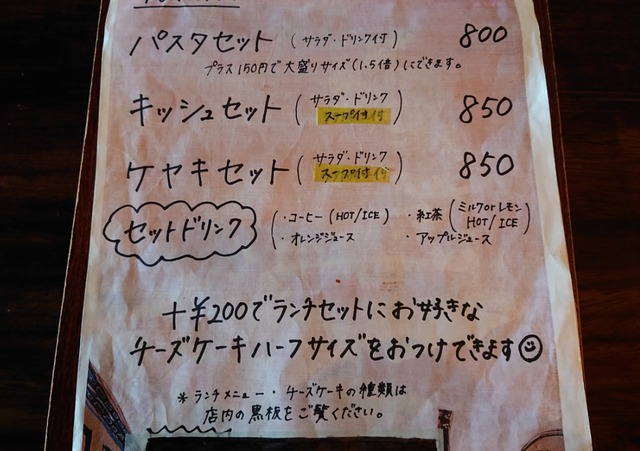 パスタセット (サラダ・ドリンク付) 800
プラス150円で大盛りサイズ(1.5倍)にできます。
キッシュセット (サラダ・ドリンク スープ付) 850
ケヤキセット (サラダ・ドリンク スープ付) 850
セットドリンク
・コーヒー (HOT/ICE) ・紅茶 (ミルクorレモン HOT/ICE)
・オレンジジュース ・アップルジュース
+¥200でランチセットにお好きな
チーズケーキハーフサイズをおつけできます
※ランチメニュー・チーズケーキの種類は
店内の黒板をご覧ください。